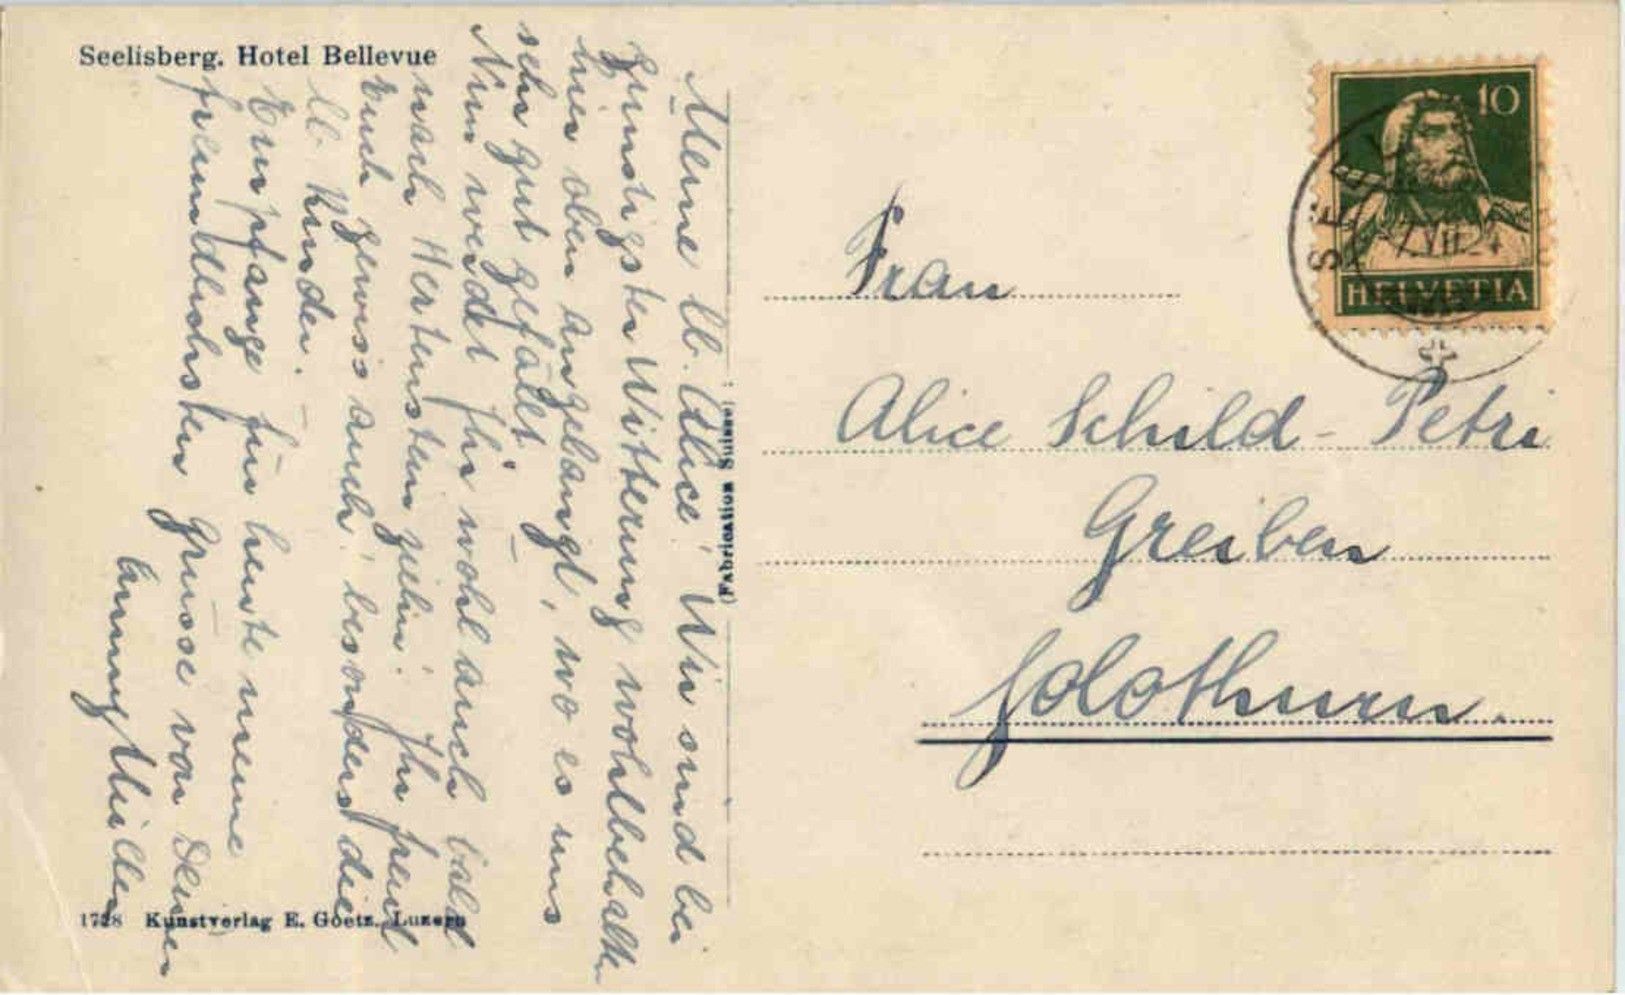 Seelisberg. Hotel Bellevue
Meine lb. Alice! Wir sind bei
günstigster Witterung wohlbehalten
hier oben angelangt, wo es uns
sehr gut gefällt.
Nun werdet Ihr wohl auch bald
nach Hertenstein gehn. Ihr freut
Euch gewiss auch, besonders die
lb. Kinder.
Empfange für heute meine
freundlichsten Grüsse von Deiner
Annny Müller
(Fabrication Suisse)
1728 Kunstverlag E. Goetz, Luzern
10
HELVETIA
SEELI
7.VII.
Frau
Alice Schild-Petri
Greiben
Solothurn.